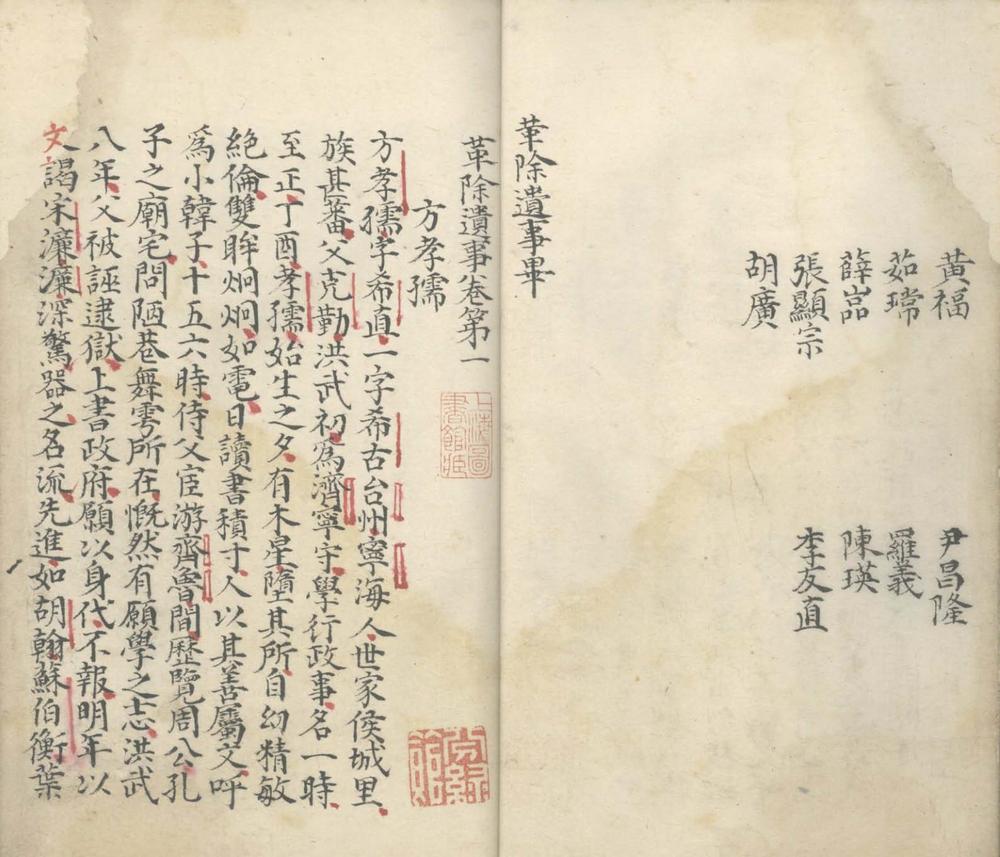 黃福 尹昌隆
茹瑺 羅義
薛嵓 陳瑛
張顯宗 李友直
胡廣
革除遺事畢
革除遺事卷第一
方孝孺
方孝孺字希直一字希古台州寧海人世家侯城里
族甚蕃父克勤洪武初爲濟寧守學行政事名一時
至正丁酉孝孺始生之夕有木星墮其所自幼精敏
絶倫雙眸炯炯如電日讀書積寸人以其善屬文呼
爲小韓子十五六時侍父宦游齊魯間歷覽周公孔
子之廟宅問陋巷舞雩所在慨然有願學之志洪武
八年父被誣逮獄上書政府願以身代不報明年以
文謁宋濂濂深驚器之名流先進如胡翰蘇伯衡葉
上海圖書館藏